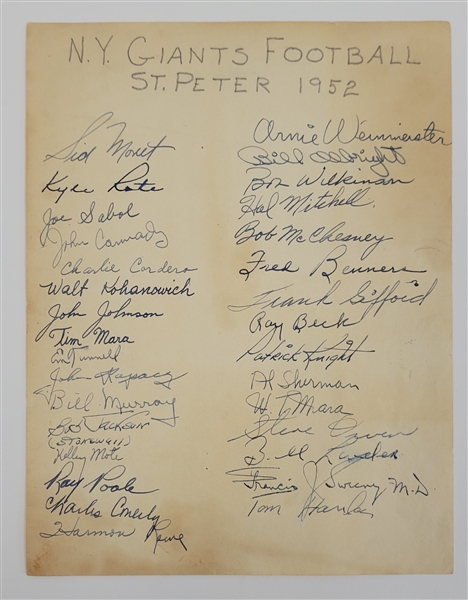 N.Y. GIANTS FOOTBALL
ST. PETER 1952
Sid Moret
Kyle Rote
Joe Sabol
John Cannady
Charlie Cordero
Walt Kohanowich
John Johnson
Tim Mara
Em Tunnell
John Rapacz
Bill Murray
Bob Jackson
(STONEWALL)
Kelley Mote
Ray Poole
Charlie Conerly
Harmon Rowe
Arnie Weinmeister
Bill Albright
Bob Wilkinson
Hal Mitchell
Bob McChesney
Fred Benners
Frank Gifford
Ray Beck
Patrick Knight
Al Sherman
W.T. Mara
Steve Owen
B. M.
Francis J. Sweeny M.D.
Tom